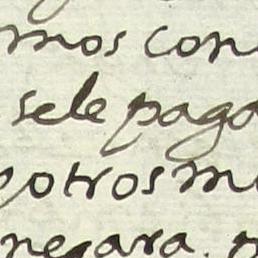 mos con
sele paga
potros m
negara.